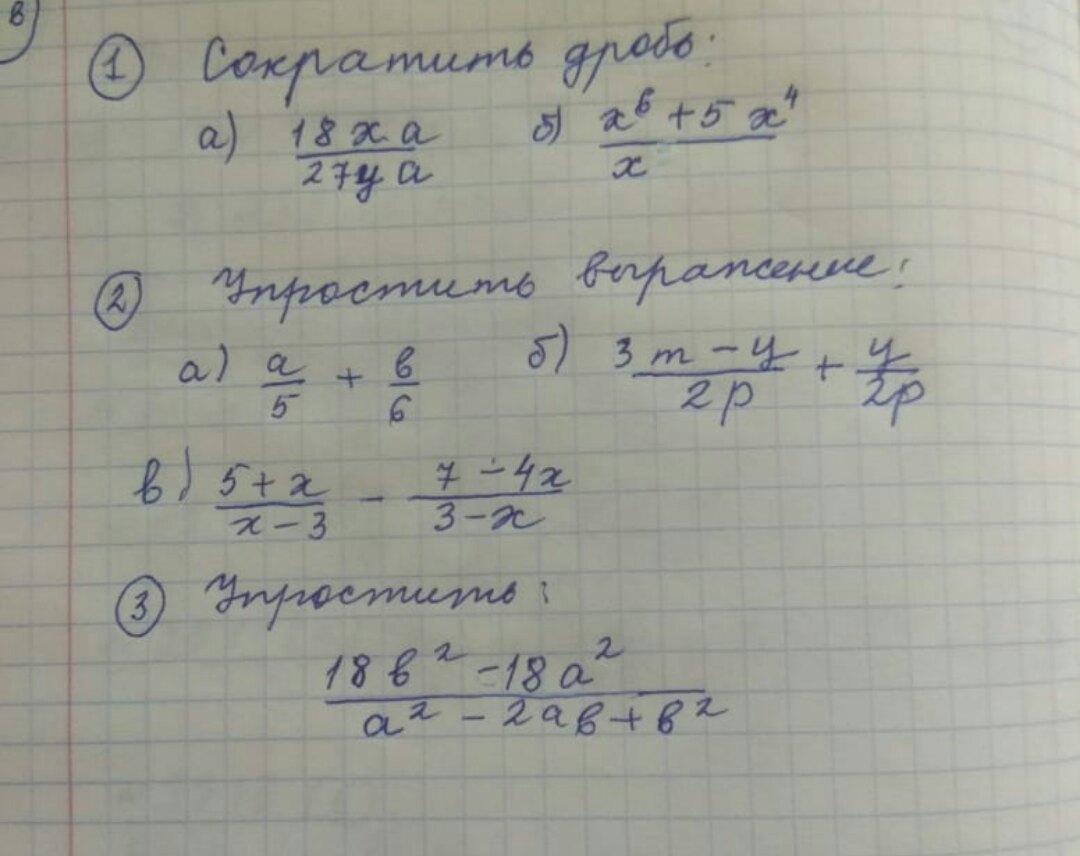 в)
① Сократить дробь:
а) 18xa/27ya б) x⁶+5x⁴/x
② Упростить выражение:
а) a/5 + в/6 б) 3m-y/2p + y/2p
в) 5+x/x-3 - 7-4x/3-x
③ Упростить:
18в²-18a²/a²-2aв+в²